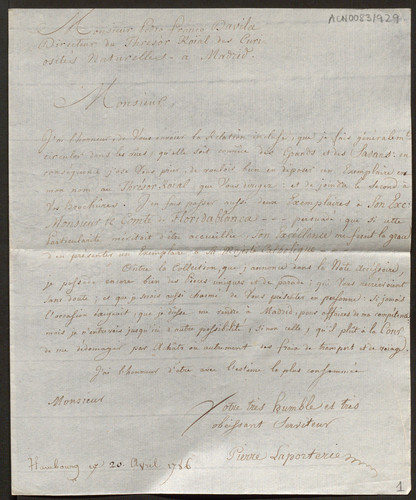 ACN0083/929
Monsieur Don Franco Davila
Directeur du Thresor Roial des Curi-
ositez Naturelles - à Madrid.
Monsieur,
J'ai l'honneur de Vous envoier la Relation que je fais généralement
circuler dans les vues, qu'elle soit connue des Grands et des Savans; en
consequence j'ose Vous prier de vouloir bien en déposer un Exemplaire en
mon nom au Thresor Roial, qui Vous indique, et de joindre le second à
Vos J'en fais passer aussi deux Exemplaires à Son Exc.
Monsieur le Comte de Floridablanca - - - persuadé que si cette
particularité meritoit d'être accueillie, Son Excellence me feroit la grace
d'en présenter un Exemplaire à Sa Majesté Catholique.
Outre la Collection, que j'annonce dans la Note
je possede encore bien des pieces uniques et de parade; qui Vous
sans doute; et que je serois aussi charmé de Vous présenter en personne. Si jamais
l'occasion exigeoit, que je dusse me rendre à Madrid, pour affaires de ma competence,
mais je n'entrevois jusqu'ici d'autre possibilité, sinon celle, qu'il plût à la Cour
de me dédomager par ou autrement des frais de transport et de voiage.
J'ai l'honneur d'être avec l'estime la plus consommée
Monsieur
Votre tres humble et tres
obeissant Serviteur
Pierre Laporterie
Hambourg 20 Avril 1786
1